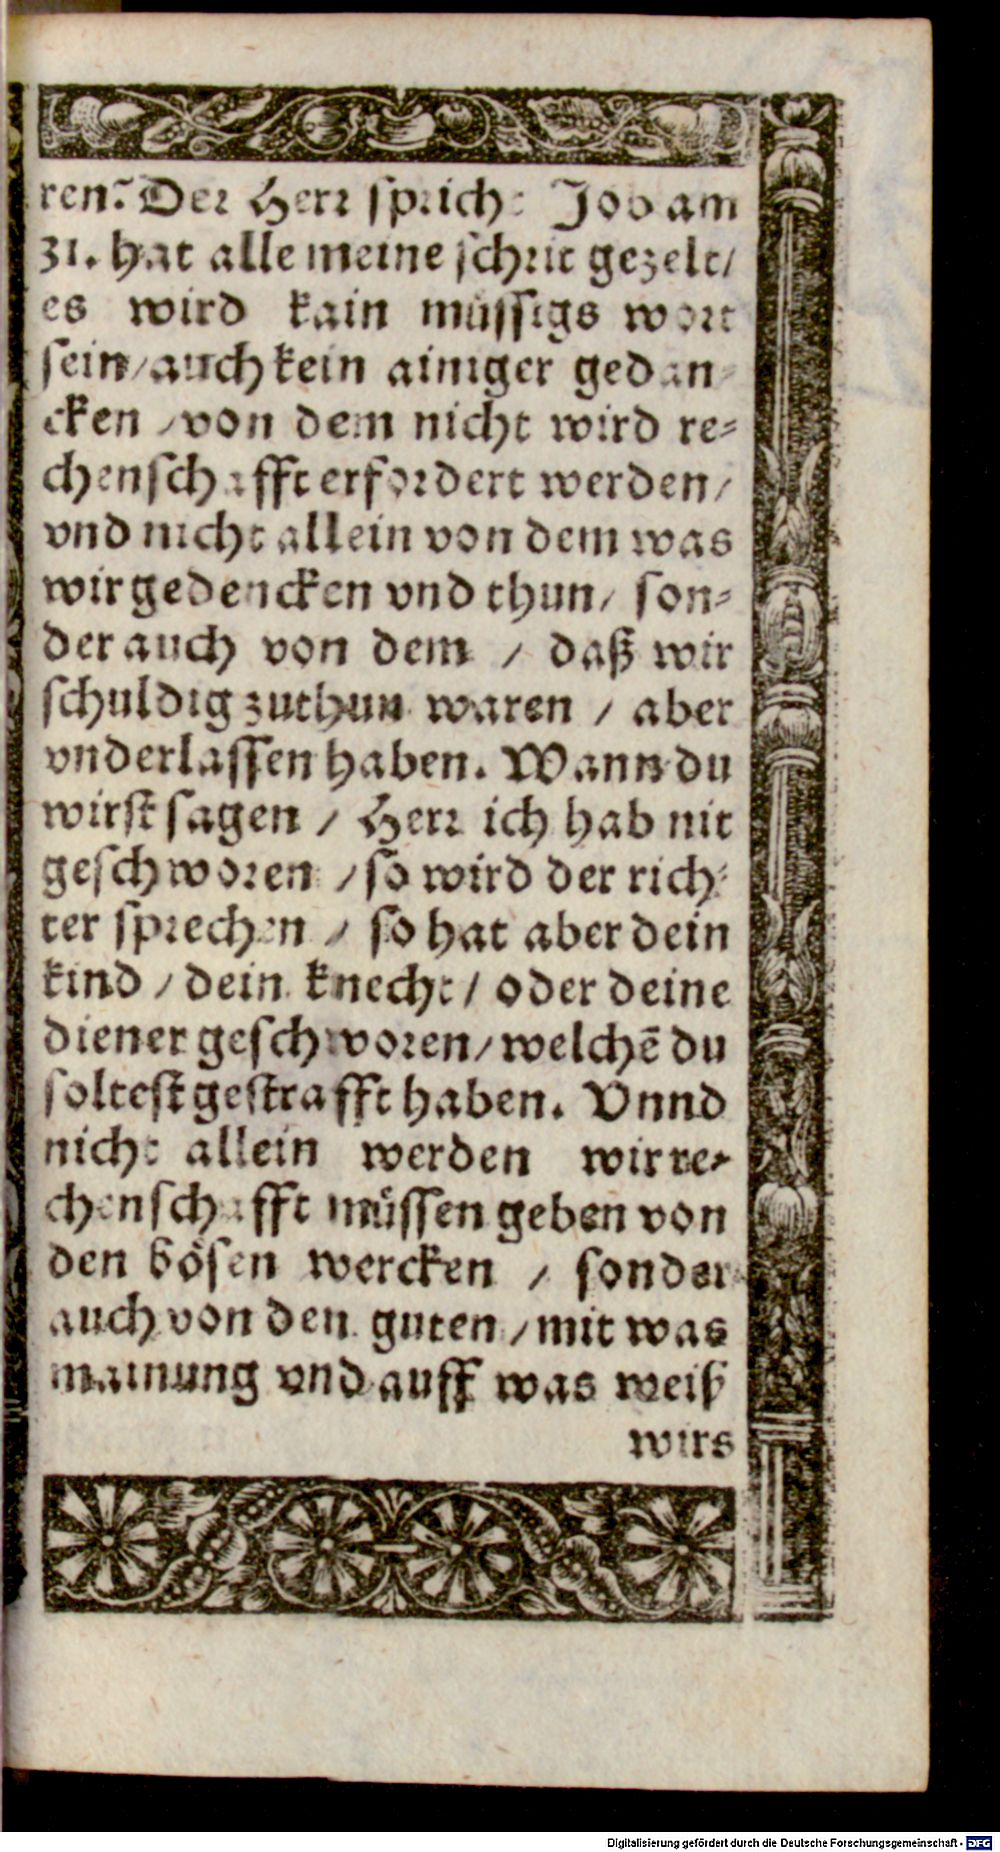 ren? Der Herr spricht Job am
31. hat alle meine schrit gezelt/
es wird kain müssigs wort
sein/auch kein ainiger gedan-
cken / von dem nicht wird re-
chenschafft erfordert werden/
vnd nicht allein von dem was
wir gedencken vnd thun/ son-
der auch von dem / daß wir
schuldig zuthun waren / aber
vnderlassen haben. Wann du
wirst sagen / Herr ich hab nit
geschworen / so wird der rich-
ter sprechen / so hat aber dein
kind / dein knecht / oder deine
diener geschworen/ welchē du
soltest gestrafft haben. Vnnd
nicht allein werden wir re-
chenschafft müssen geben von
den bösen wercken / sonder
auch von den guten / mit was
mainung vnd auff was weiß
wirs
Digitalisierung gefördert durch die Deutsche Forschungsgemeinschaft - DFG